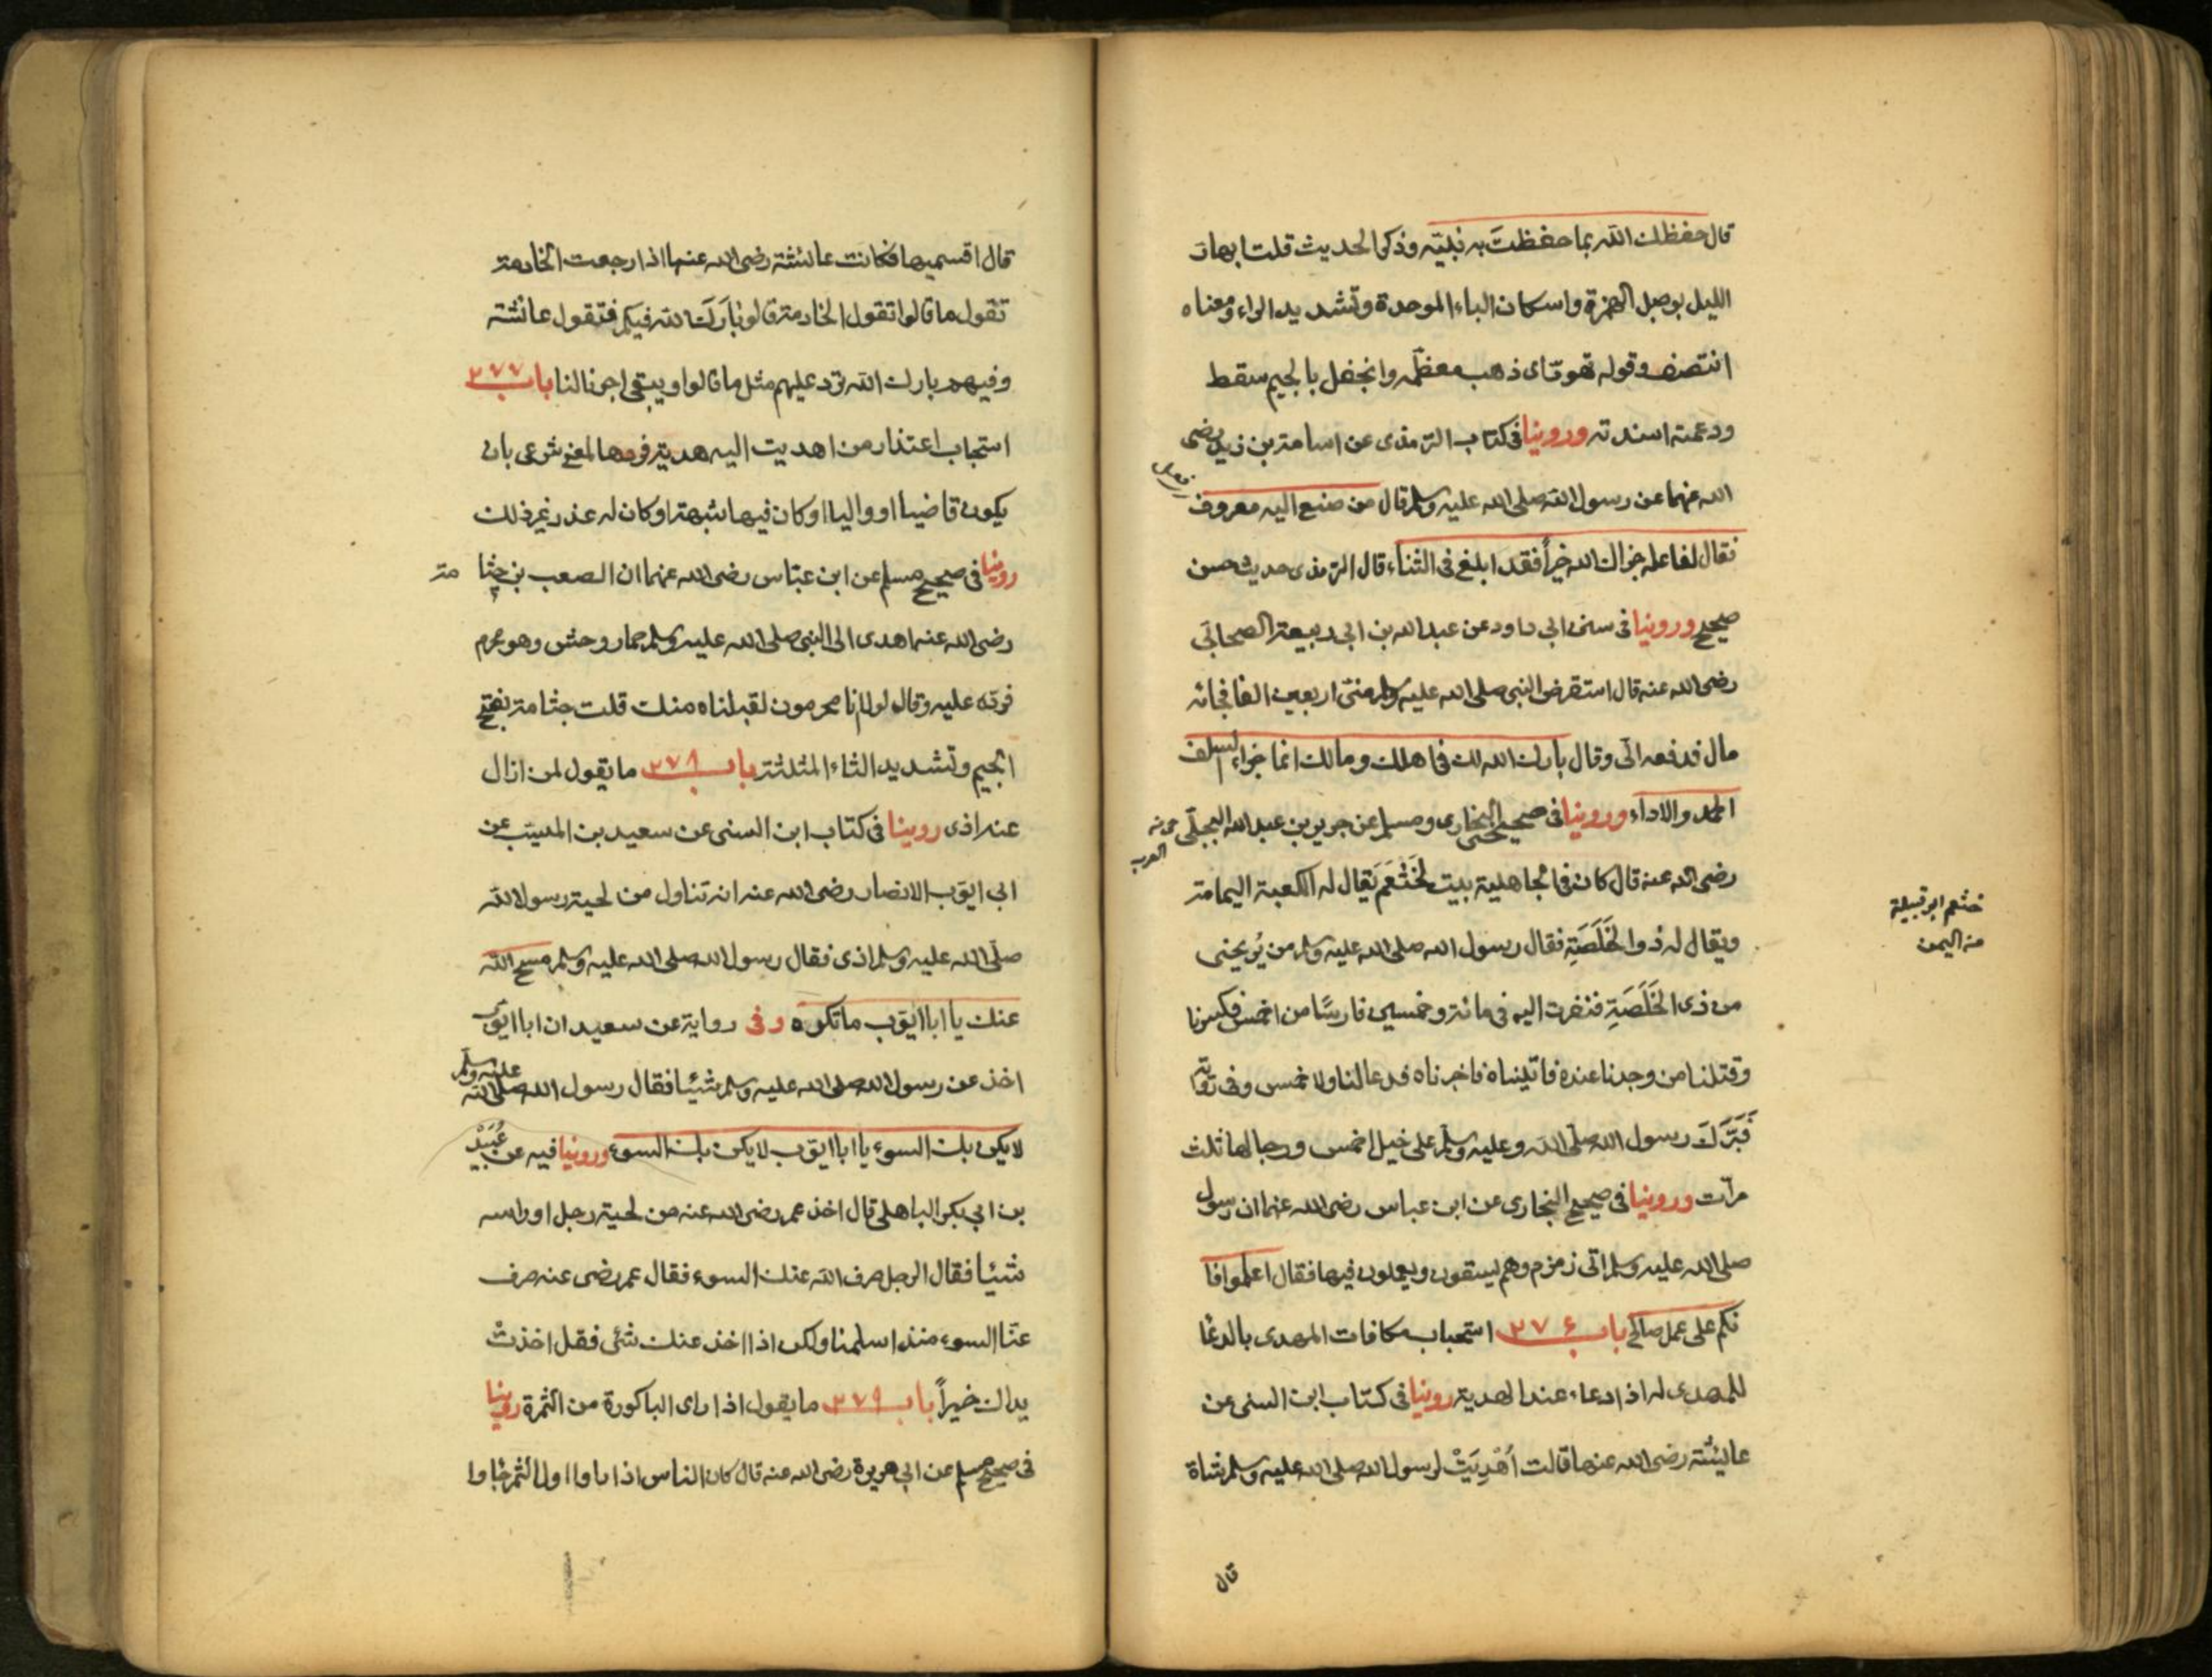 قال حفظك الله بما حفظتَ به نبيّه وذكر الحديث قلت ابهار
الليل بوصل الهمزة واسكان الباء الموحدة وتشديد الراء ومعناه
انتصف وقوله تهوّر اى ذهب معظمه وانجفل بالجيم سقط
ودعمته اسندته وروينا فى كتاب الترمذى عن اسامة بن زيد رضى
الله عنهما عن رسول الله صلى الله عليه وسلم قال من صنع اليه معروف
فقال لفاعله جزاك الله خيراً فقد ابلغ فى الثناء قال الترمذى حديث حسن
صحيح وروينا فى سنن ابي داود عن عبد الله بن ابي ربيعة الصحابي
رضى الله عنه قال استقرض النبى صلى الله عليه وسلم منى اربعين الفا فجائه
مال فدفعه الىّ وقال بارك الله لك فى اهلك ومالك انما جزاء السلف
الحمد والاداء وروينا فى صحيحى البخارى ومسلم عن جرير بن عبد الله البجلى
رضى الله عنه قال كان فى الجاهلية بيت لخَثْعَم يقال له الكعبة اليمامة
ويقال له ذو الخَلَصَةِ فقال رسول الله صلى الله عليه وسلم من يُريحنى
من ذى الخَلَصَةِ فنفرت اليه فى مائة وخمسين فارسًا من احمس فكسرنا
وقتلنا من وجدنا عنده فاتيناه فاخبرناه فدعا لنا ولاحمس وفى رواية
فَبَرَّكَ رسول الله صلّى الله وعليه وسلّم على خيل احمس ورجالها ثلث
مرّات وروينا فى صحيح البخارى عن ابن عباس رضى الله عنهما ان رسول
صلى الله عليه وسلم اتى زمزم وهم يسقون ويعملون فيها فقال اعلموا فا
نكم على عمل صالح باب ٢٧٦ استحباب مكافات المهدى بالدعا
للمهدى له اذا دعاء عند الهدية روينا فى كتاب ابن السنى عن
عايشة رضى الله عنها قالت اُهْدِيَتْ لرسول الله صلى الله عليه وسلم شاة
قال
خثعم ابو قبيلة
من اليمن
قال اقسميها فكانت عائشة رضى الله عنها اذا رجعت الخادمة
تقول ما قالوا تقول الخادمة قالوا بَارَكَ الله فيكم فتقول عائشة
وفيهم بارك الله نرد عليهم مثل ما قالوا ويبقى اجرنا لنا باب ٢٧٧
استحباب اعتذار من اهديت اليه هدية فردها لمعنى شرعى بان
يكون قاضيا او واليا او كان فيها شبهة او كان له عذر غير ذلك
روينا فى صحيح مسلم عن ابن عبّاس رضى الله عنهما ان الصعب بن جثا مة
رضى الله عنه اهدى الى النبى صلى الله عليه وسلم حمار وحش وهو محرم
فرده عليه وقال لولا انا محرمون لقبلناه منك قلت جثامة بفتح
الجيم وتشديد الثاء المثلثة باب ٢٧٨ ما يقول لمن ازال
عنه اذى روينا فى كتاب ابن السنى عن سعيد بن المسيّب عن
ابي ايّوب الانصار رضى الله عنه انه تناول من لحية رسول الله
صلّى الله عليه وسلم اذى فقال رسول الله صلى الله عليه وسلم مسح الله
عنك يا ابا ايّوب ما تكره وفى رواية عن سعيد ان ابا ايوب
اخذ عن رسول الله صلى الله عليه وسلم شيئا فقال رسول الله صلى الله عليه وسلم
لا يكن بك السوء يا ابا ايوب لا يكن بك السوء وروينا فيه عن عُبَيْد
بن ابي بكر الباهلى قال اخذ عمر رضى الله عنه من لحية رجل او راسه
شيئا فقال الرجل صرف الله عنك السوء فقال عمر رضى عنه صرف
عنّا السوء منذ اسلمنا ولكن اذا اخذ عنك شئ فقل اخذتْ
يداك خيراً باب ٢٧٩ ما يقول اذا راى الباكورة من الثمرة روينا
فى صحيح مسلم عن ابي هريرة رضى الله عنه قال كان الناس اذا راوا اول الثمر جاوا